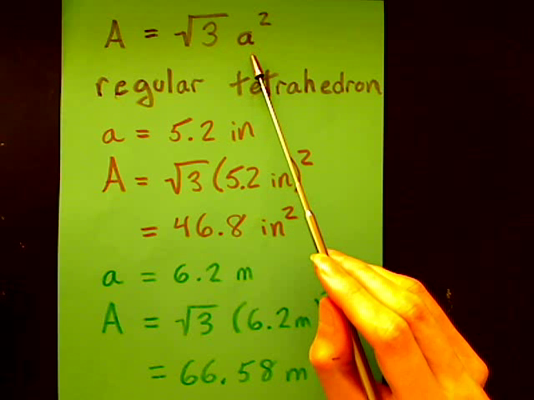 A = √3 a²
regular tetrahedron
a = 5.2 in
A = √3 (5.2 in)²
= 46.8 in²
a = 6.2 m
A = √3 (6.2m)
= 66.58 m